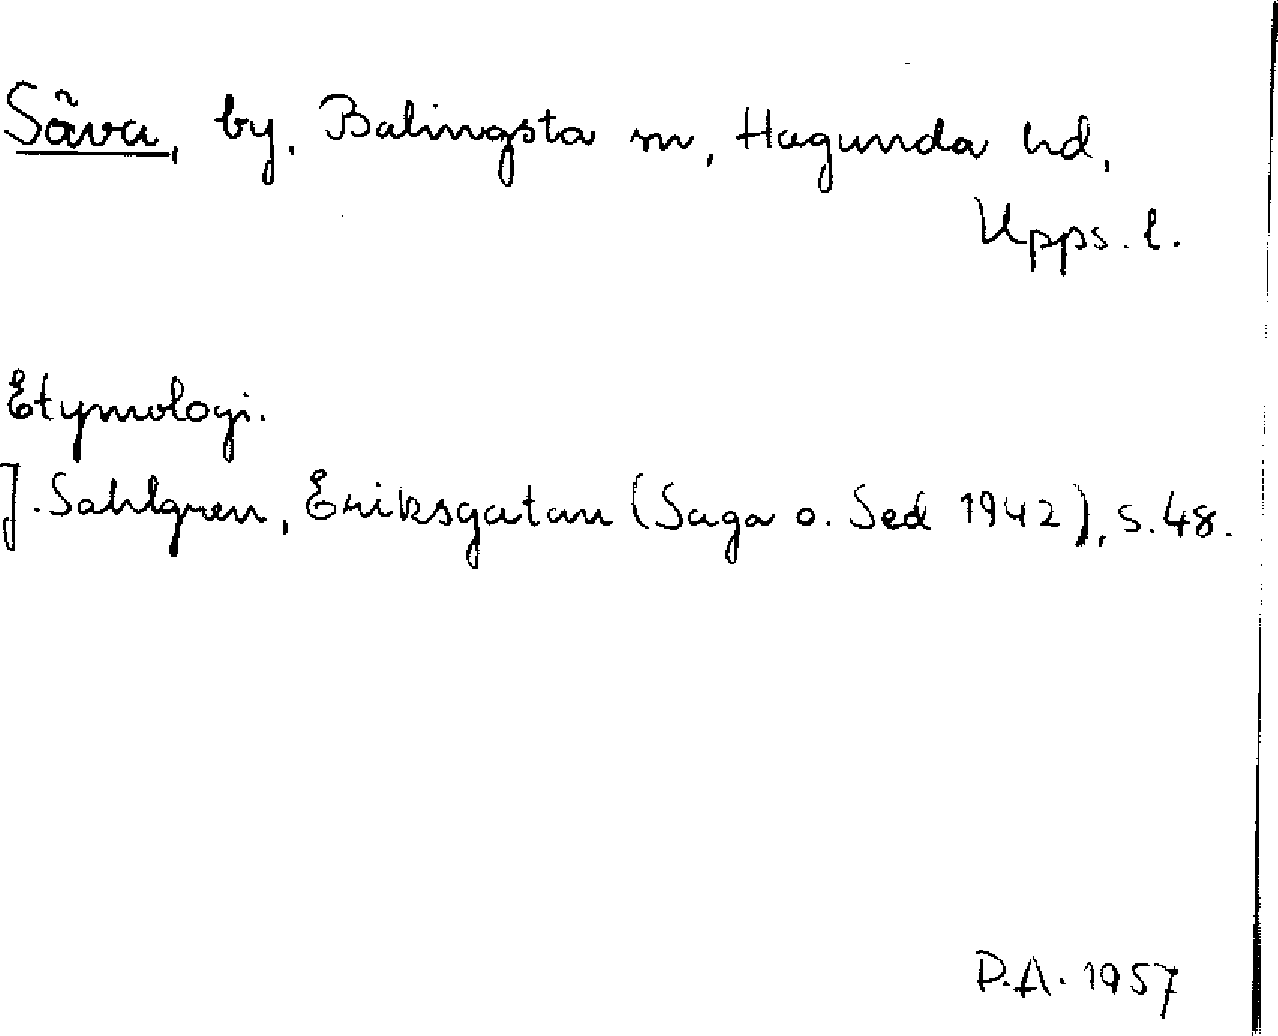 Säva, by, Balingsta sn, Hagunda hd,
Upps. l.
Etymologi.
J. Sahlgren, Eriksgatan (Saga o. Sed 1942), s. 48.
D.A. 1957